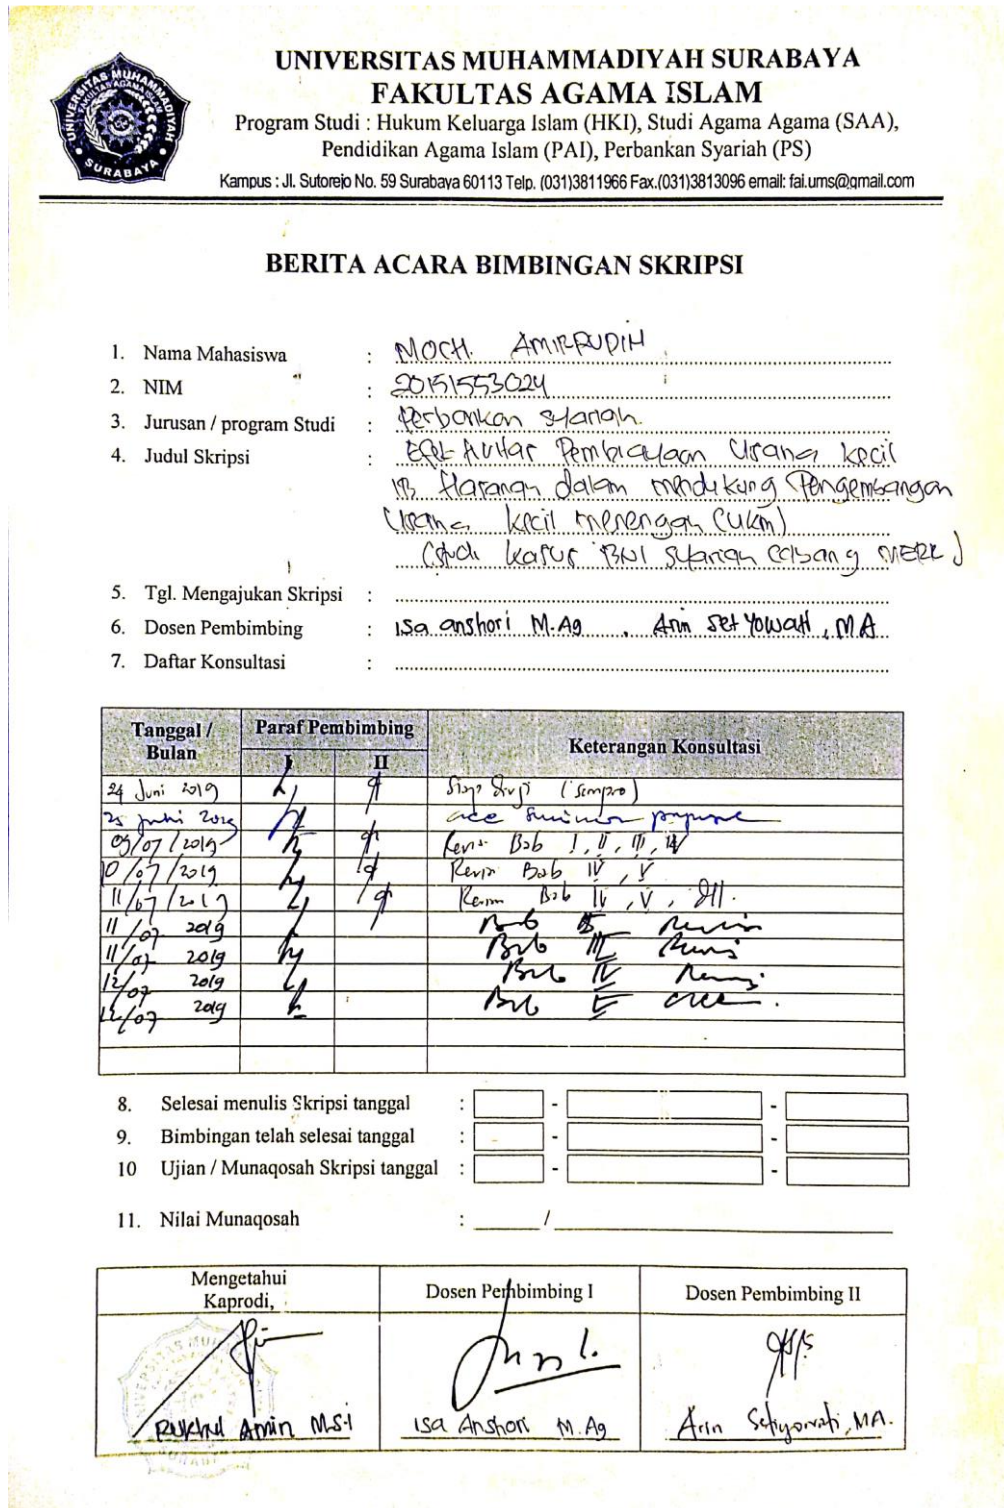 UNIVERSITAS MUHAMMADIYAH SURABAYA
FAKULTAS AGAMA ISLAM
Program Studi : Hukum Keluarga Islam (HKI), Studi Agama Agama (SAA),
Pendidikan Agama Islam (PAI), Perbankan Syariah (PS)
Kampus : Jl. Sutorejo No. 59 Surabaya 60113 Telp. (031)3811966 Fax.(031)3813096 email: fai.ums@gmail.com
UNIVERSITAS MUHAMMADIYAH SURABAYA
BERITA ACARA BIMBINGAN SKRIPSI
1. Nama Mahasiswa : MOCH. AMIRRUDIN
2. NIM : 20151553024
3. Jurusan / program Studi : Perbankan syariah
4. Judul Skripsi : Pembiayaan Usaha kecil
iB Hasanah dalam mendukung Pengembangan
Usaha kecil menengah (UKM)
(Studi kasus BNI syariah cabang MERR)
5. Tgl. Mengajukan Skripsi :
6. Dosen Pembimbing : Isa anshori M.Ag , Arin Setyowati, MA
7. Daftar Konsultasi :
Tanggal / Bulan Paraf Pembimbing Keterangan Konsultasi
I II
24 Juni 2019 (Sempro)
25 Juni 2019 acc
09/07/2019 Revisi Bab I, II, III, IV
10/07/2019 Revisi Bab IV, V
11/07/2019 Bab IV, V,
11/07 2019 Bab Revisi
11/07 2019 Bab III Revisi
12/07 2019 Bab IV Revisi
12/07 2019 Bab V acc.
8. Selesai menulis Skripsi tanggal : - -
9. Bimbingan telah selesai tanggal : - -
10 Ujian / Munaqosah Skripsi tanggal : - -
11. Nilai Munaqosah : /
Mengetahui
Kaprodi,
Dosen Pembimbing I
Dosen Pembimbing II
Rukhul Amin M.S.I
Isa Anshori M.Ag
Arin Setiyowati, MA.